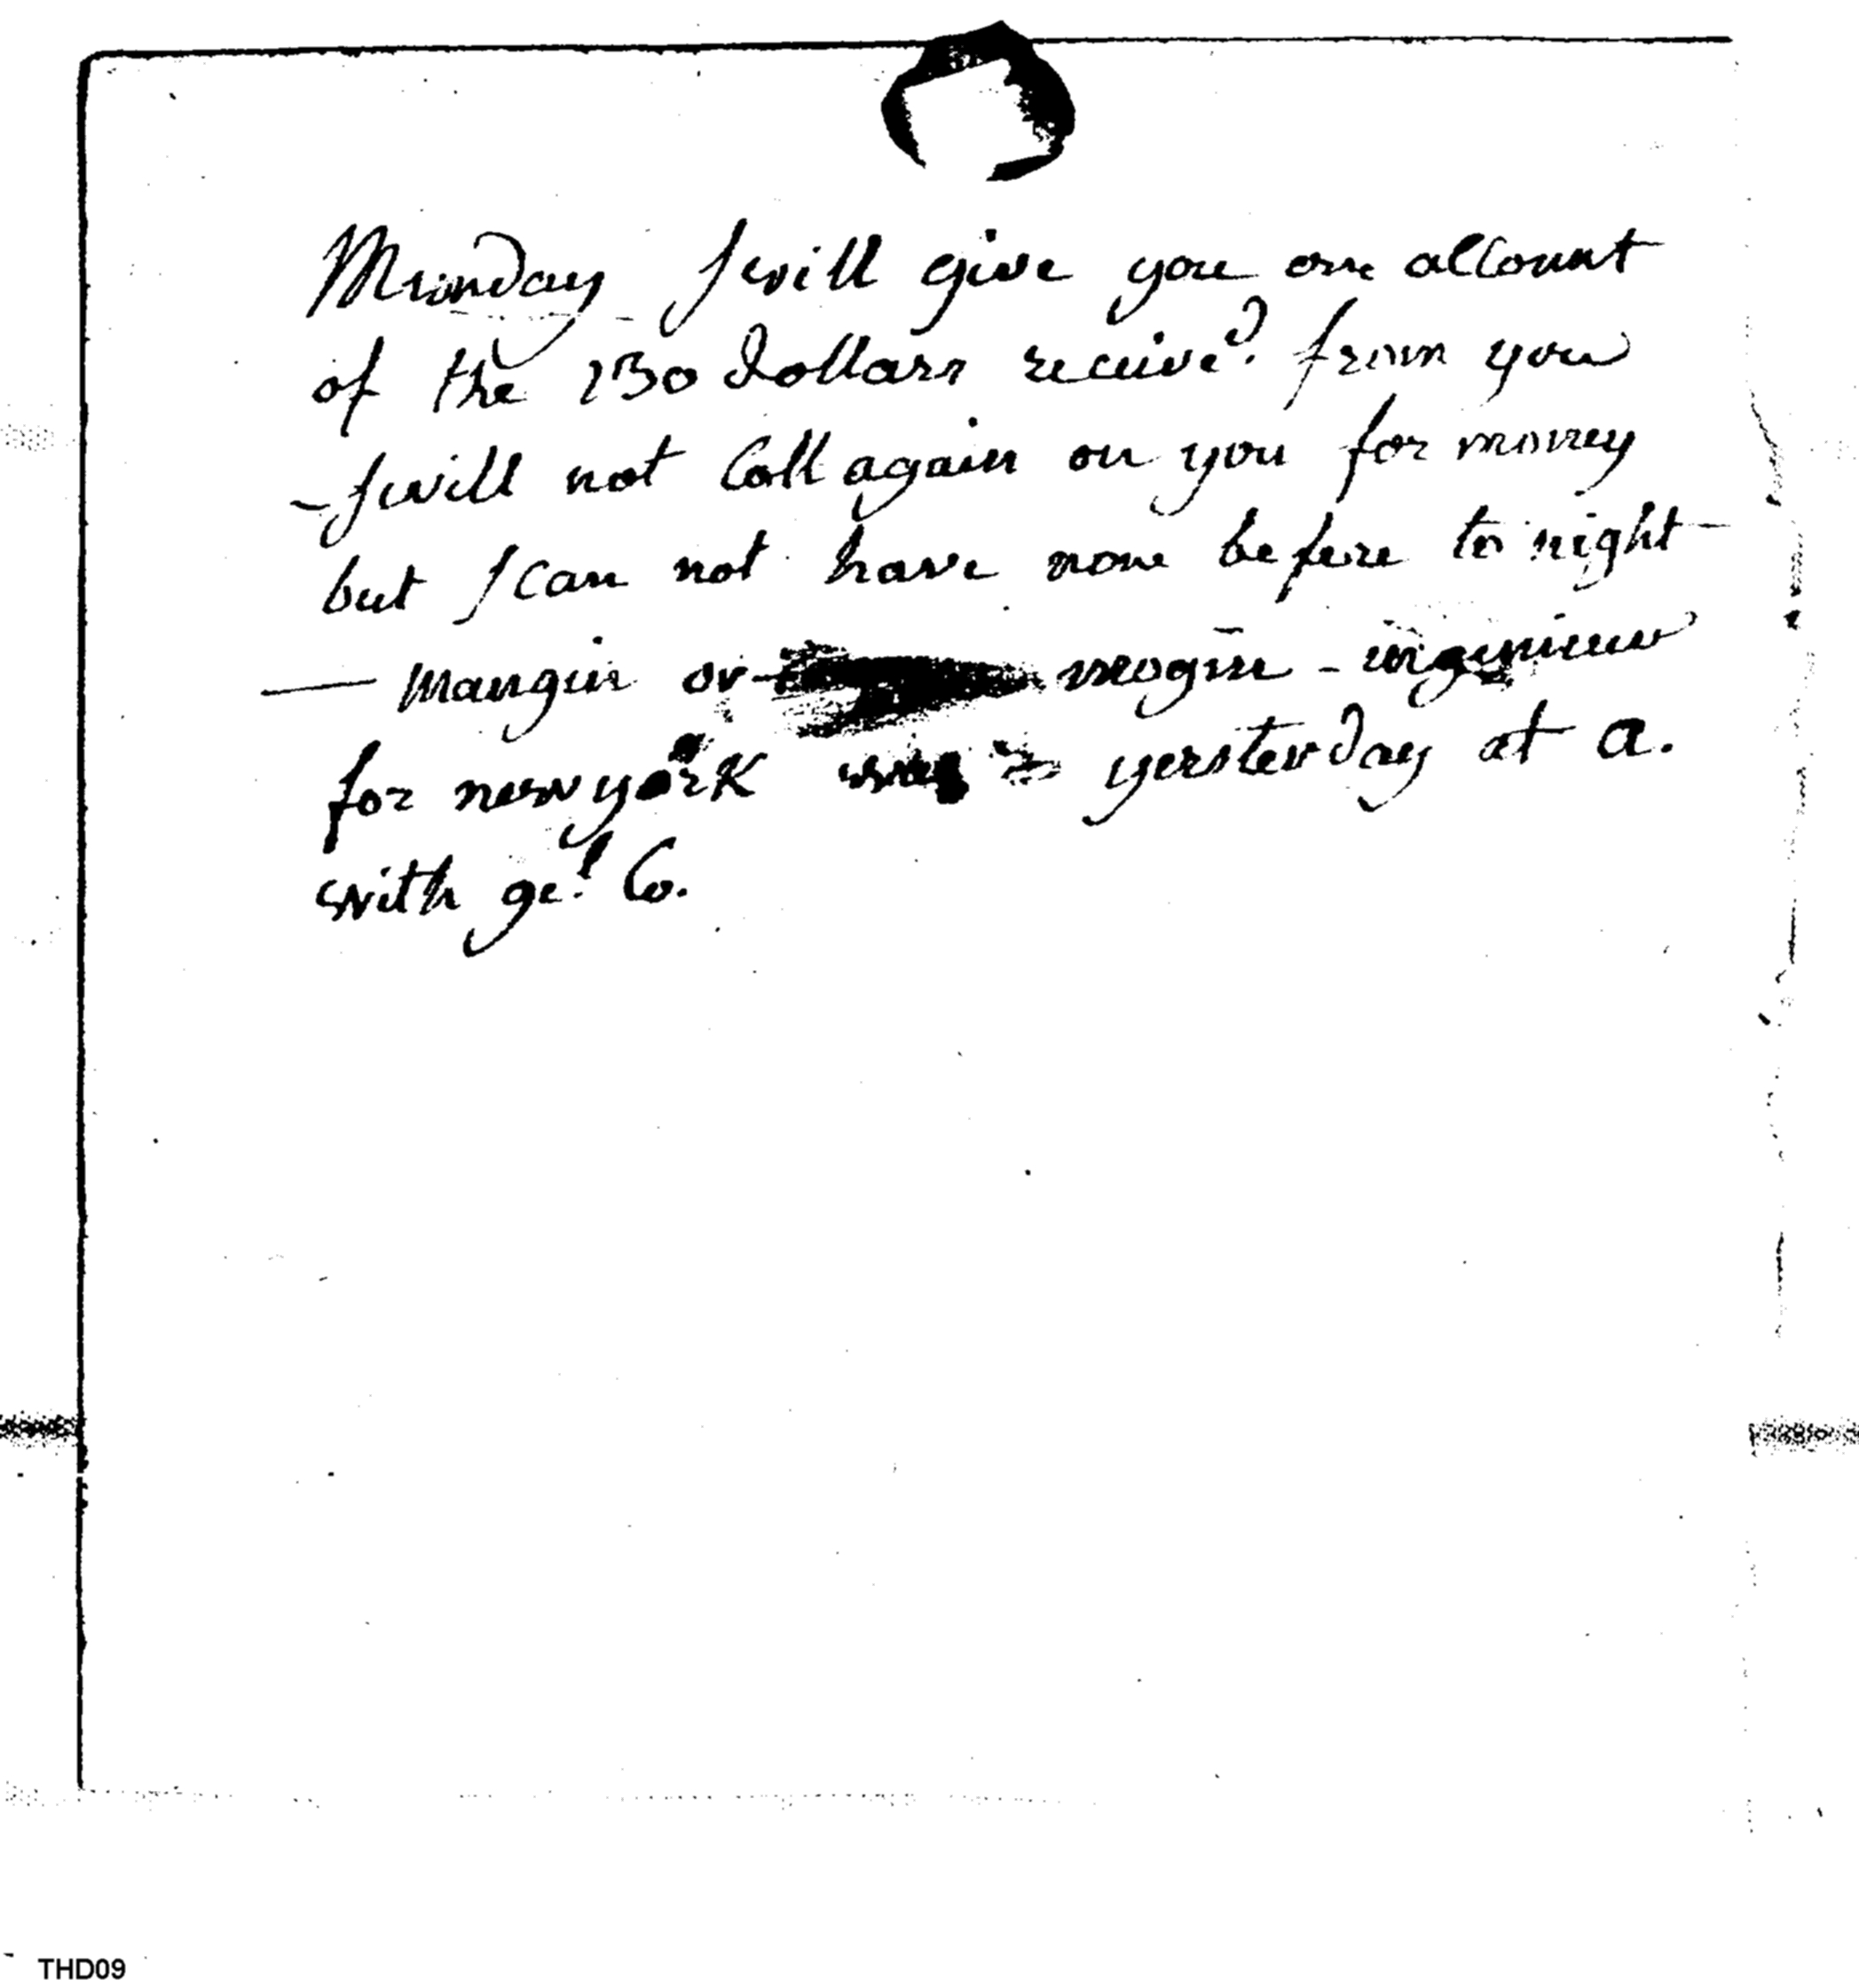 Munday I will give you one account
of the 130 dollars receive.d from you
- I will not Call again on you for money
but I can not have none before to night -
— Mangin or mogin - ingenieur
for newyork was yersterday at a.
with ge.l Co.
THD09